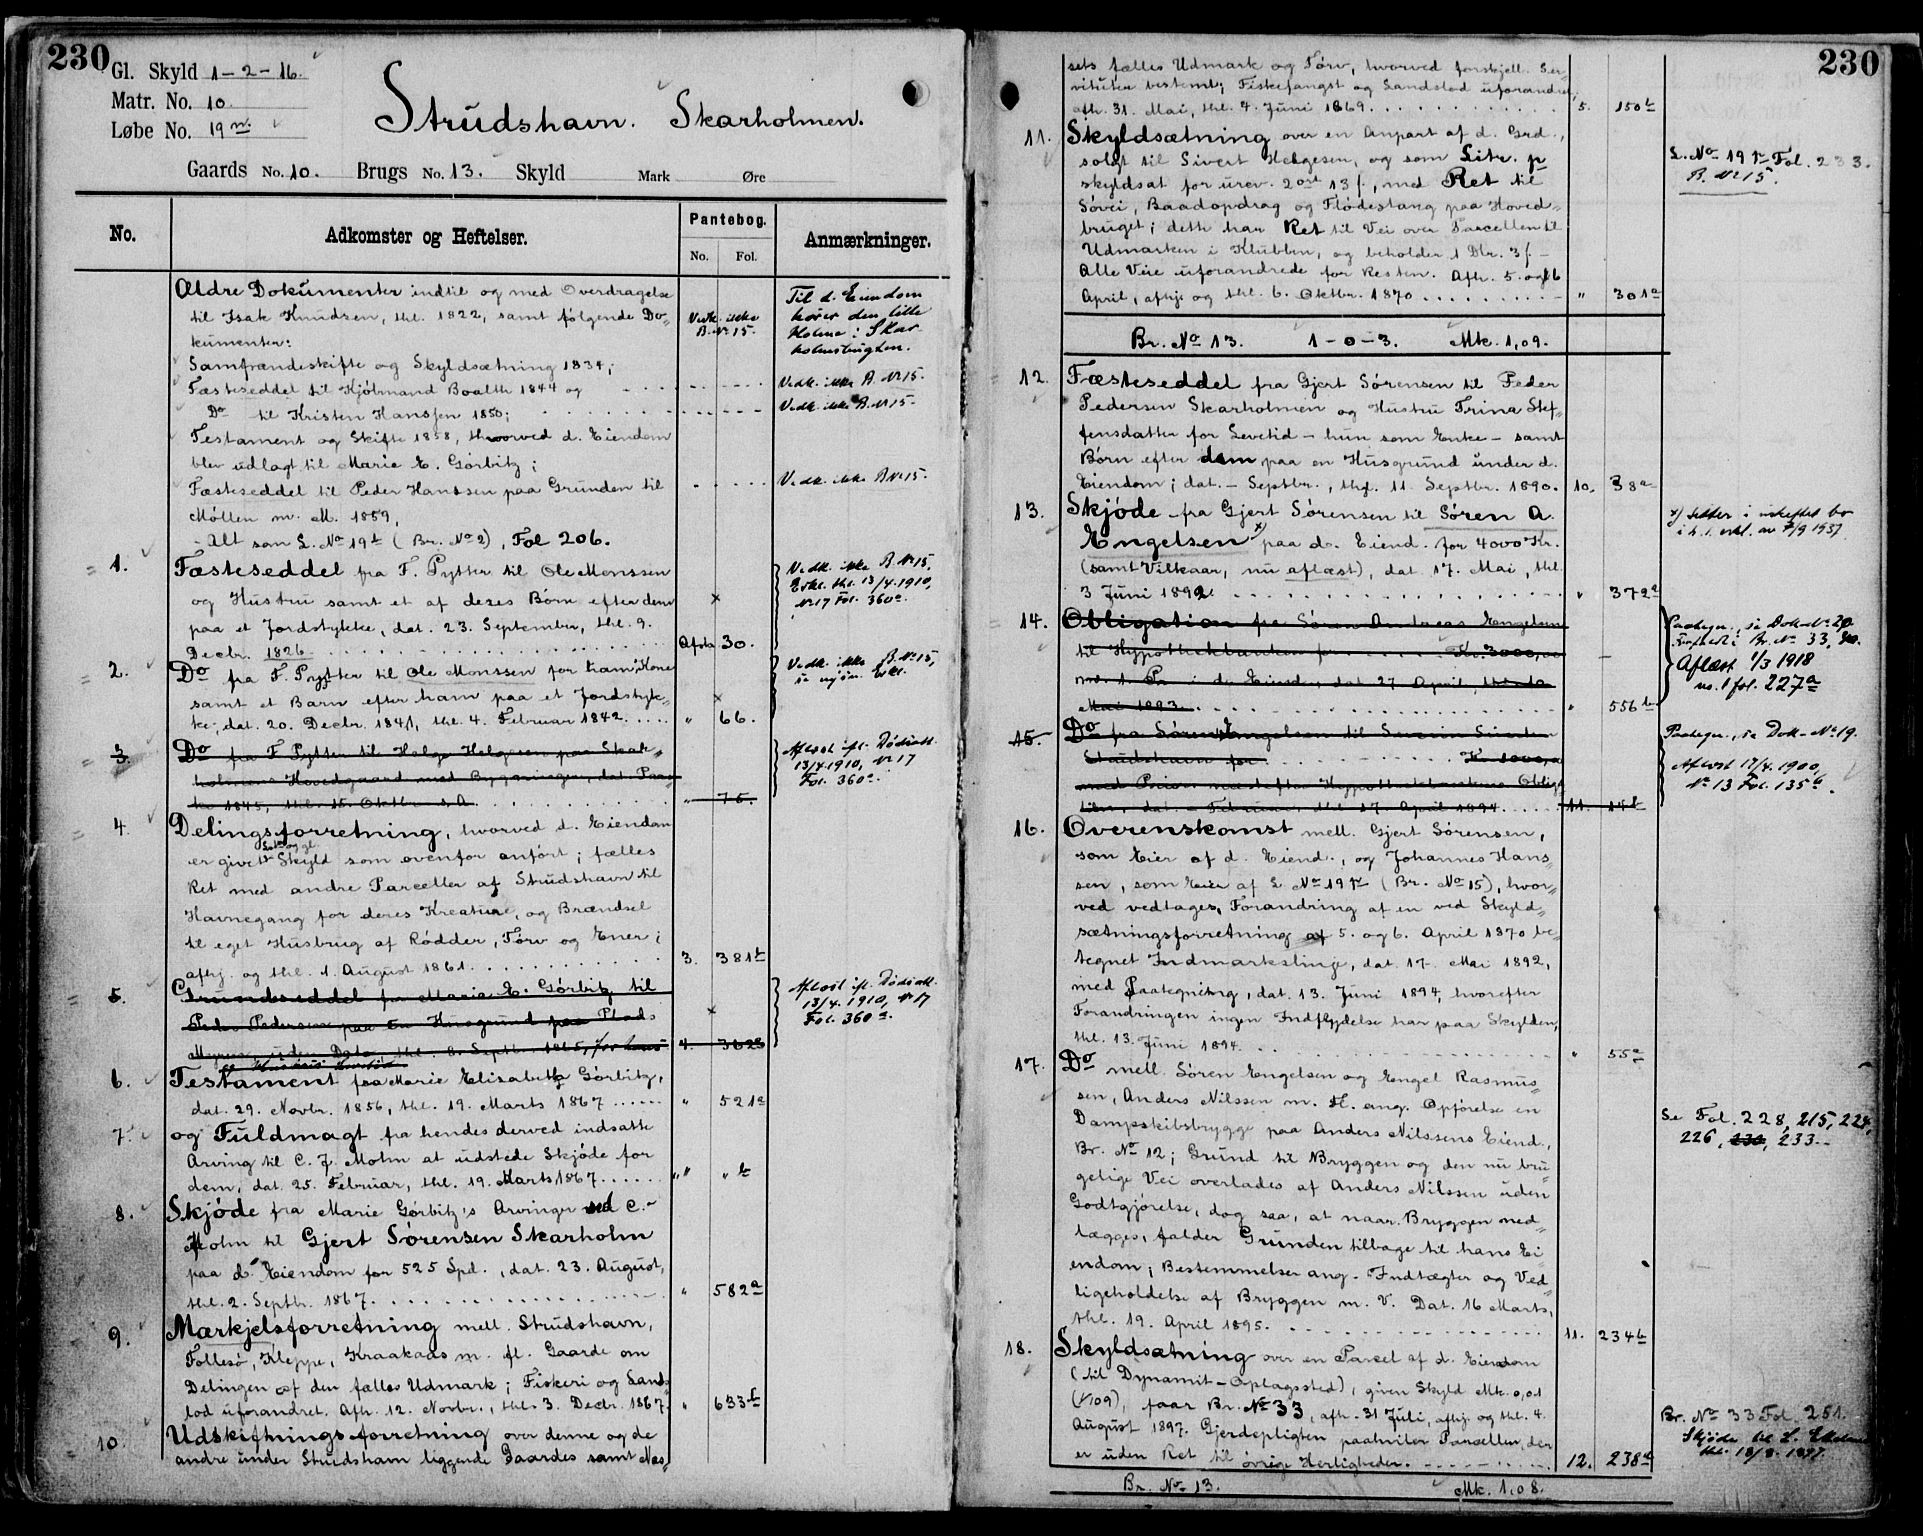 230
Gl. Skyld 1-2-16.
Matr. No. 10.
Løbe No. 19 m.
Strudshavn. Skarholmen.
Gaards No. 10. Brugs No. 13. Skyld Mark Øre
No.
Adkomster og Heftelser.
Pantebog.
No. Fol.
Anmærkninger.
Ældre Dokumenter indtil og med Overdragelse
til Isak Knudsen, thl. 1822, samt følgende Do-
kumenter:
Vedk. ikke
B. No 15.
Til d. Eiendom
hører den lille
Holme i Skar-
holmsbugten.
Samfrændeskifte og Skyldsætning 1834;
Fæsteseddel til Hjólmand Boalth 1844 og
Vedk. ikke B. No 15.
Do til Kristen Hanssen 1850;
Vedk. ikke B. No 15.
Testament og Skifte 1858, hvorved d. Eiendom
blev udlagt til Marie E. Górbitz;
Fæsteseddel til Peder Hanssen paa Grunden til
Vedk. ikke B No 15.
Móllen m. M. 1859,
- Alt som L. No 19 b (Br. No 2), Fol 206.
1. Fæsteseddel fra F. Pytter til Ole Monssen
og Hustru samt et af deres Børn efter dem
paa et Jordstykke, dat. 23. September, thl. 9.
Decbr. 1826. Afsla 30.
Vedk. ikke B. No 15,
Erkl. thl. 13/4.1910,
No 17 Fol. 360a.
2. Do fra F. Pytter til Ole Monssen for ham, Kone
samt et Barn efter ham paa et Jordstyk-
ke, dat. 20. Decbr. 1841, thl. 4. Februar 1842. " 66.
Vedk. ikke B. No 15,
3. Do fra F Pytter til Helge Helgesen paa Skar-
holmens Hovedgaard med Bygninger, dat. Paas-
ke 1845, thl. 15. Oktbr. s. A. " 75.
Aflæst ifl. Dødsatt.
13/4 1910, No 17
Fol. 360a.
4. Delingsforretning, hvorved d. Eiendom
er givet Skyld som ovenfor anfórt; fælles
Ret med andre Parceller af Strudshavn til
Havnegang for deres Kreature, og Brændsel
til eget Husbrug af Rødder, Tørv og Ener;
afhj. og thl. 1. August 1861. 3. 381b
5. Grundseddel fra Marie E. Górbitz til
Peder Pedersen paa en Husgrund paa Plads
Myren, uden Dato, thl. 8. Septbr. 1865, for hans
og Hustrus Levetid 4. 362b
Aflæst ifl. Dødsatt.
13/4. 1910, No 17
Fol. 360a.
6. Testament fra Marie Elisabeth Górbitz,
dat. 29. Novbr. 1856, thl. 19. Marts 1867 " 521a
7. og Fuldmagt fra hendes derved indsatte
Arving til C. J. Mohn at udstede Skjøde for
dem, dat. 25. Februar, thl. 19. Marts 1867. " " b
8. Skjóde fra Marie Górbitz's Arvinger ved C.
Mohn til Gjert Sórensen Skarholm
paa d. Eiendom for 525 Spd., dat. 23. August,
thl. 2. Septbr. 1867. " 582a
9. Mærkjelsforretning mell. Strudshavn,
Follesó, Kleppe, Kraakaas m. fl. Gaarde om
Delingen af den fælles Udmark; Fiskeri og Lands-
lod uforandret. Afh. 12. Novbr., thl. 3. Decbr. 1867. " 633b
10. Udskiftningsforretning over denne og de
andre under Strudshavn liggende Gaardes samt Næs-
230
sets fælles Udmark og Tørv, hvorved forskjell. Ser-
vituter bestemt; Fiskefangst og Landslod uforandret,
afh. 31. Mai, thl. 4. Juni 1869. 5. 150b
11. Skyldsætning over en Anpart af d. Grd.,
solgt til Sivert Helgesen, og som Litr. p
skyldsat for urev. 2 ort 13 f., med Ret til
Søvei, Baadopdrag og Flódestang paa Hoved-
bruget; dette har Ret til Vei over Parcellen til
Udmarken i Klubben, og beholder 1 Dlr. 3 f. -
Alle Veie uforandrede for Resten. Afh. 5. og 6
April, afhj. og thl. 6. Oktbr. 1870 " 301a
L. No 19 p Fol. 233.
B. No 15.
Br. No 13. 1-0-3. Mk. 1,09.
12. Fæsteseddel fra Gjert Sórensen til Peder
Pedersen Skarholmen og Hustru Trina Stef-
fensdatter for Levetid - hun som Enke - samt
Børn efter dem paa en Husgrund under d.
Eiendom; dat. - Septbr., thl. 11. Septbr. 1890. 10. 38a
13. Skjóde fra Gjert Sórensen til Sóren A.
Engelsen x) paa d. Eiend. for 4000 Kr.
(samt Vilkaar, nu aflæst), dat. 17. Mai, thl.
3 Juni 1892. " 372a
x) sitter i uskiftet bo
14. Obligation fra Søren Andreas Engelsen
til Hypothekbanken for Kr. 3000,00
m. 1. Pr. i d. Eiend., dat 27 April, thl.
Mai 1893. " 556b
Paategn., se Dok. No 20.
Aflæst 1/3 1918
no. 1 fol. 227a
15. Do fra Søren Engelsen til
Strudshavn for K. 1000,
med Prior. næstefter Hypothekbankens Obliga-
tion, dat. - Februar, thl. 17. April 1894. 11. 14b
Paategn., se Dok. No 19.
Aflæst 17/4. 1900,
No 13 Fol. 135b.
16. Overenskomst mell. Gjert Sórensen,
som Eier af d. Eiend., og Johannes Hans-
sen, som Eier af L. No 19 p (Br. No 15), hvor-
ved vedtages, Forandring af en ved Skyld-
sætningsforretning af 5. og 6. April 1870 be-
tegnet Indmarkslinje, dat. 17. Mai 1892,
med Paategning, dat. 13. Juni 1894, hvorefter
Forandringen ingen Indflydelse har paa Skylden,
thl. 13. Juni 1894. " 55a
17. Do mell. Sóren Engelsen og Engel Rasmus-
sen, Anders Nilssen m. fl. ang. Opførelse en
Dampskibsbrygge paa Anders Nilssens Eiend.,
Br. No 12; Grund til Bryggen og den nu bru-
gelige Vei overlades af Anders Nilssen uden
Godtgjórelse, dog saa, at naar Bryggen ned-
lægges, falder Grunden tilbage til hans Ei-
endom; Bestemmelser ang. Indtægter og Ved-
ligeholdelse af Bryggen m. V. Dat. 16 Marts,
thl. 19. April 1895. 11. 234b
Se Fol. 228, 215, 224,
226, 230, 233.
18. Skyldsætning over en Parcel af d. Eiendom
(til Dynamit-Oplagssted), given Skyld Mk. 0,01
(1/109), faar Br. No 33, afh. 31 Juli, afhj. og thl. 4.
August 1897. Gjerdepligten paahviler Parcellen, der
er uden Ret til óvrige Herligheder. 12. 238a
Br. No 33 Fol. 251.
Skjóde til L.
thl. 18/8. 1897.
Br. No 13. Mk. 1,08.